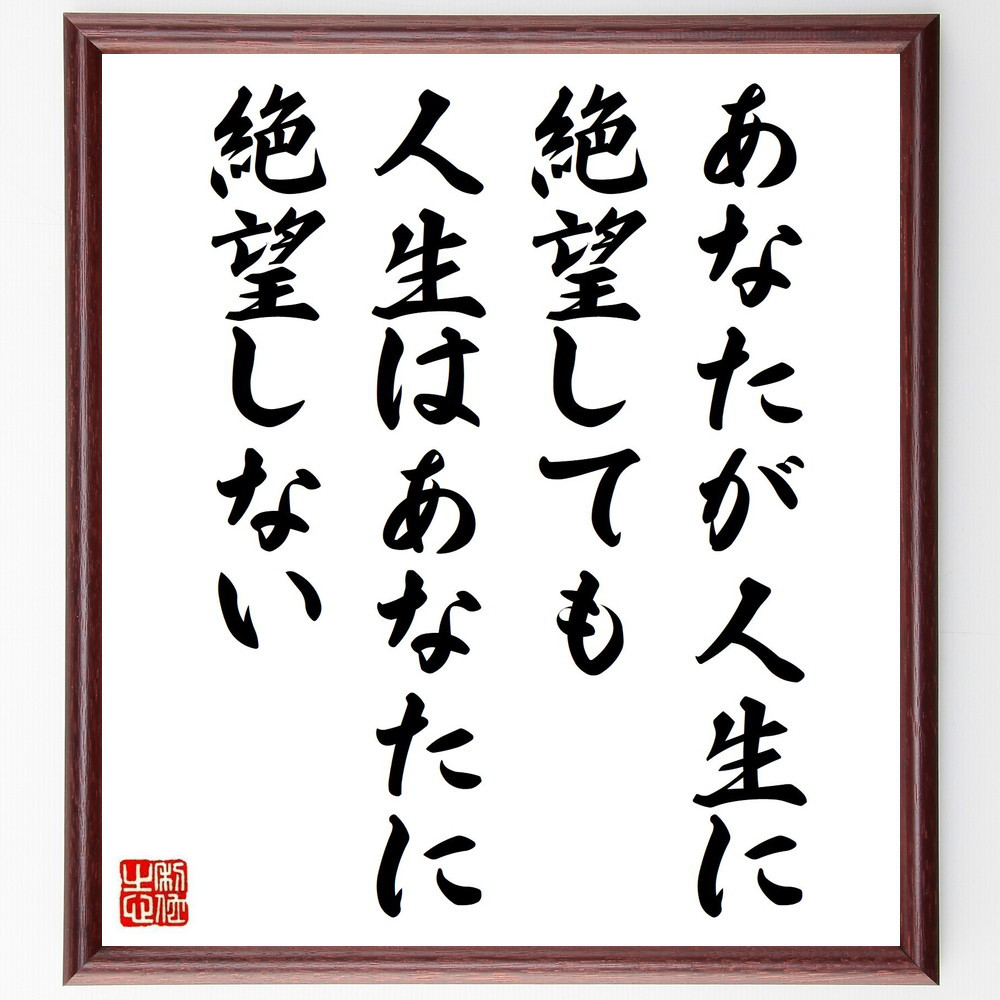 あなたが人生に
絶望しても
人生はあなたに
絶望しない